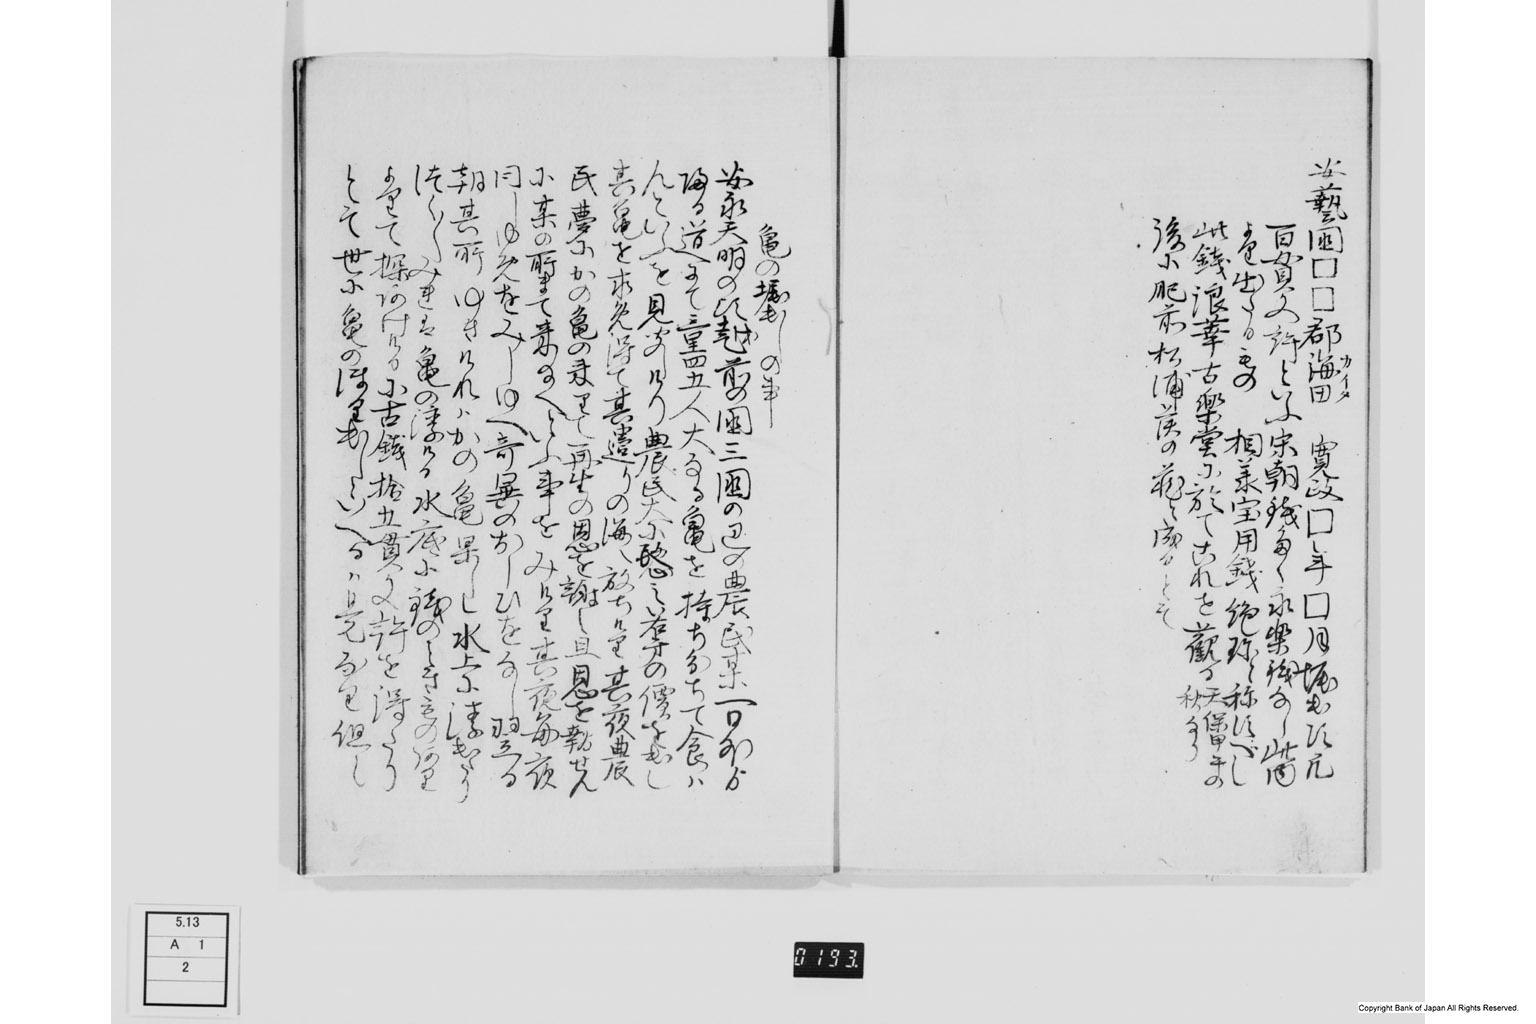 安藝國□□郡海田 寛政□年□月堀出ス凡
カイタ
百貫文許といふ宋朝錢多く永樂錢なし此内
より出たるもの 相美宝用錢 絶珍と称すべし
此錢浪華古樂堂に於てこれを觀る 天保甲午の
秋なり
後に肥前松浦侯の蔵と成るとて
亀の堀出しの事
安永天明の比越前の國三國の辺の農民某一日外より
帰る道にて童四五人大なる亀を持ちたちて食ハ
んといふを見あり農民大に愍之若干の價を出し
其亀を求め得て其邊りの海へ放ちけり其夜農
民夢にかの亀の来りて再生の恩を謝し且恩を報せん
に某の所まて来るへしといふ事をみけり其夜毎夜
同しゆめをみしゆへ奇異のおもひをなし翌る
朝其所ゆきけれハかの亀果し水上に浮出たり
つくみれは亀の浮ける水底に錢のときもの
よりて探ける小古錢拾五貫文許を得たり
とて世に亀の堀出しといへるハ是なり但し
5.13
A 1
2
0193.
Copyright Bank of Japan All Rights Reserved.